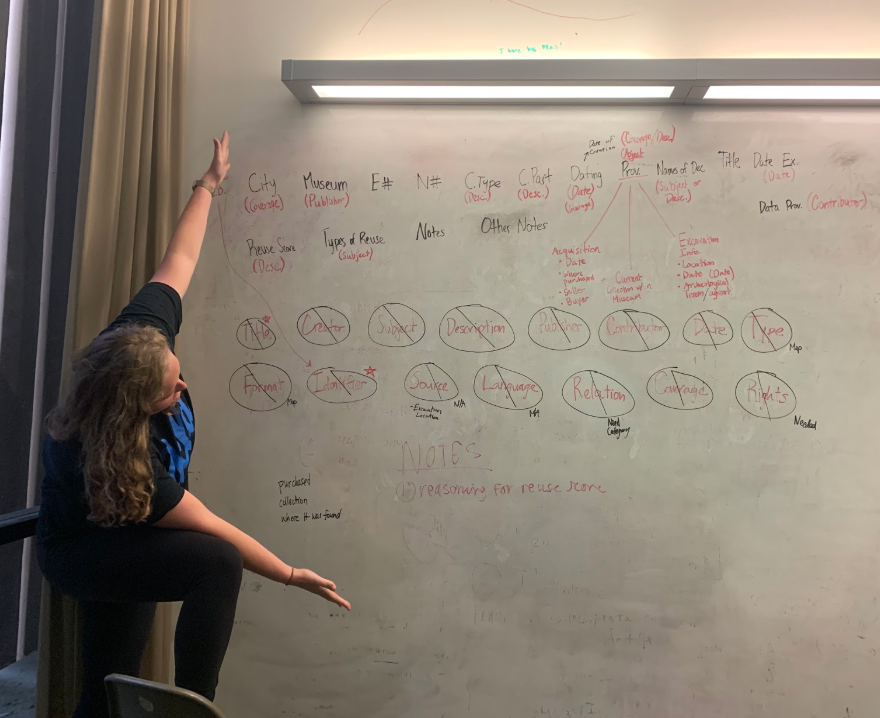 Date of
Creation
(Coverage, Desc)
(Agent
City
(Coverage)
Museum
(Publisher)
E#
N#
C.Type
(Desc.)
C.Part
(Desc.)
Dating
(Date)
(Coverage)
Prov.
Names of Dec
(Subject or
Desc.)
Title
Date Ex.
(Date)
Data Prov. (Contributor)
Reuse Score
(Desc)
Types of Reuse
(Subject)
Notes
Other Notes
Acquisition
• Date
• Where
purchased
• Seller
• Buyer
Current
Museum
Excavation
Info
• Location
• Date (Date)
• Archaeological
Title
Creator
Subject
Description
Publisher
Contributor
Date
Type
Map
Format
Map
Identifier
Source
N/A
-Excavation
Location
Language
Relation
Need
Category
Coverage
Rights
Needed
NOTES
① reasoning for reuse score
purchased
collection
where it was found